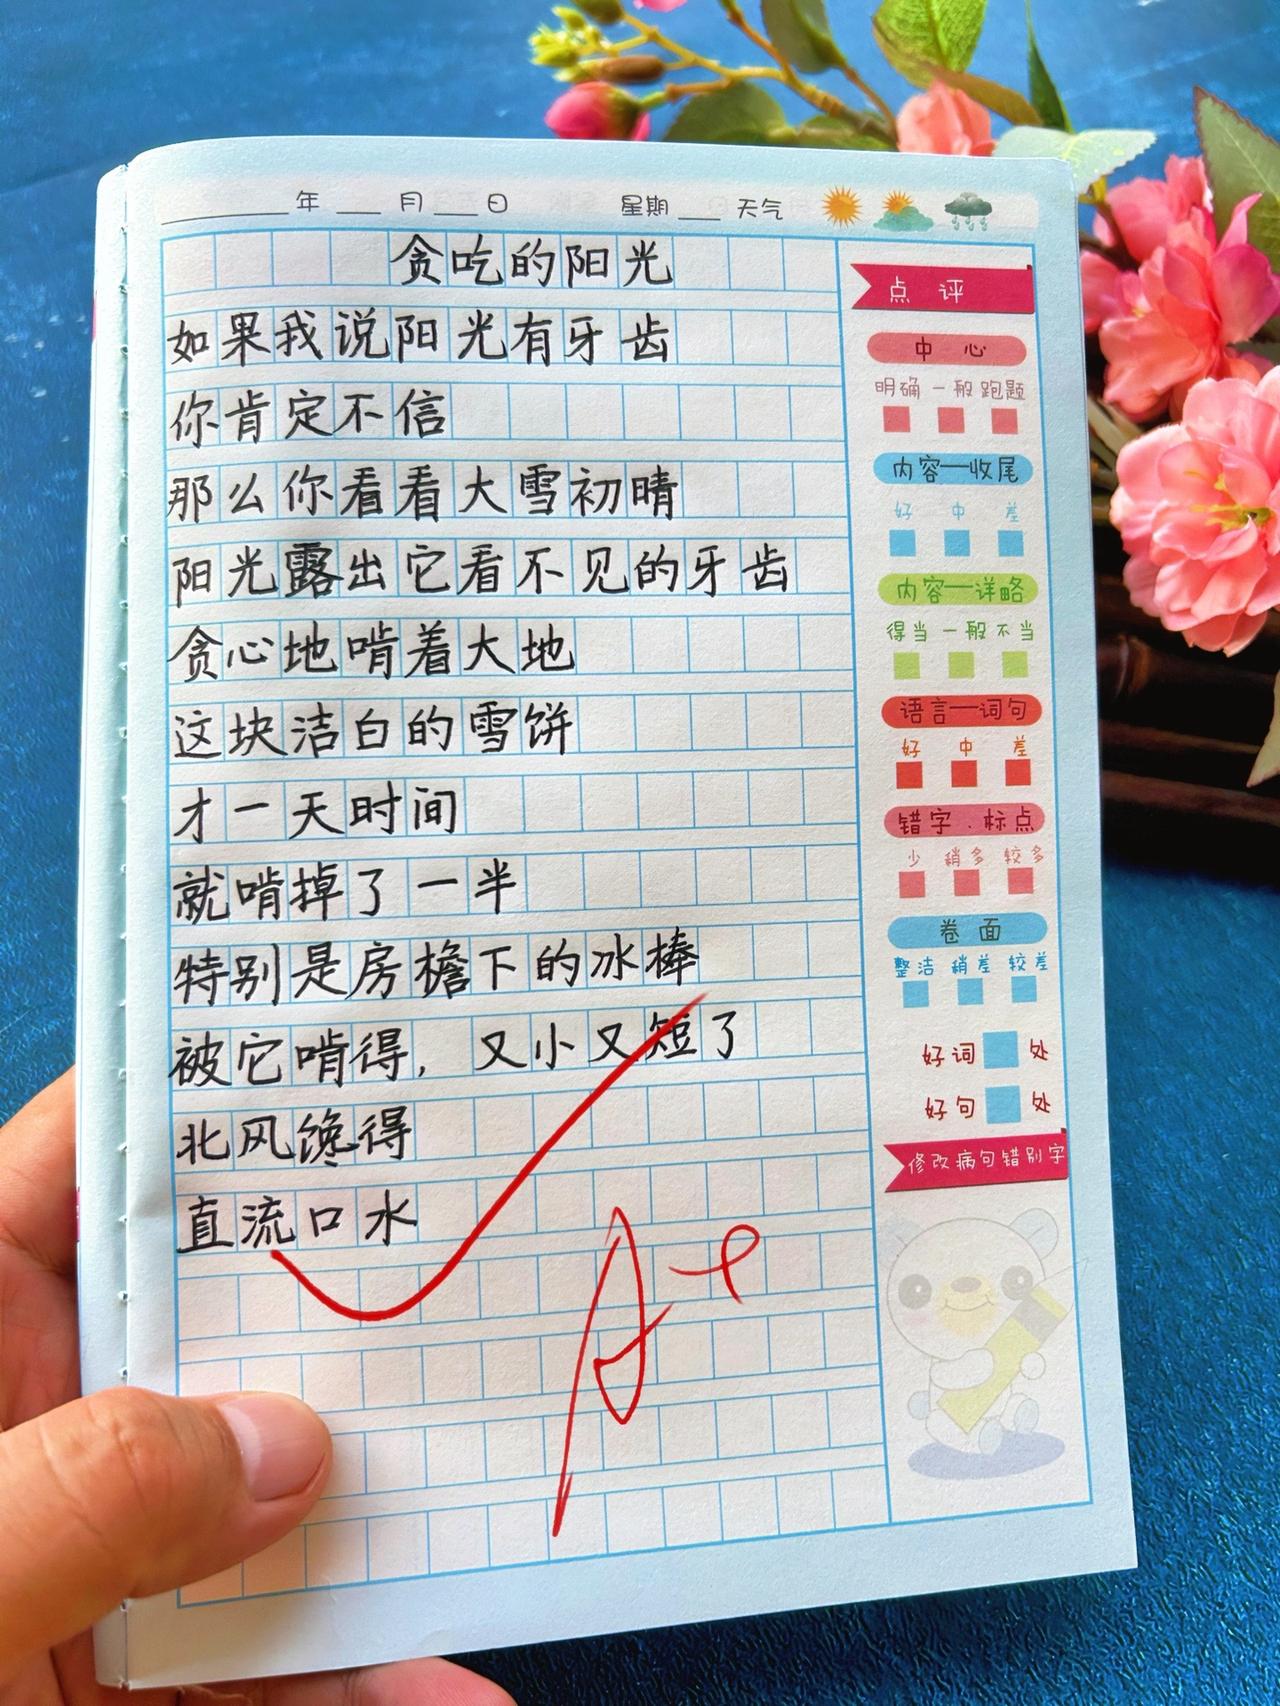 年 月 日 星期 天气
贪吃的阳光
如果我说阳光有牙齿
你肯定不信
那么你看看大雪初晴
阳光露出它看不见的牙齿
贪心地啃着大地
这块洁白的雪饼
才一天时间
就啃掉了一半
特别是房檐下的冰棒
被它啃得，又小又短了
北风馋得
直流口水
A+
点评
中心
明确 一般 跑题
内容—收尾
好 中 差
内容—详略
得当 一般 不当
语言—词句
好 中 差
错字、标点
少 稍多 较多
卷面
整洁 稍差 较差
好词 处
好句 处
修改病句错别字